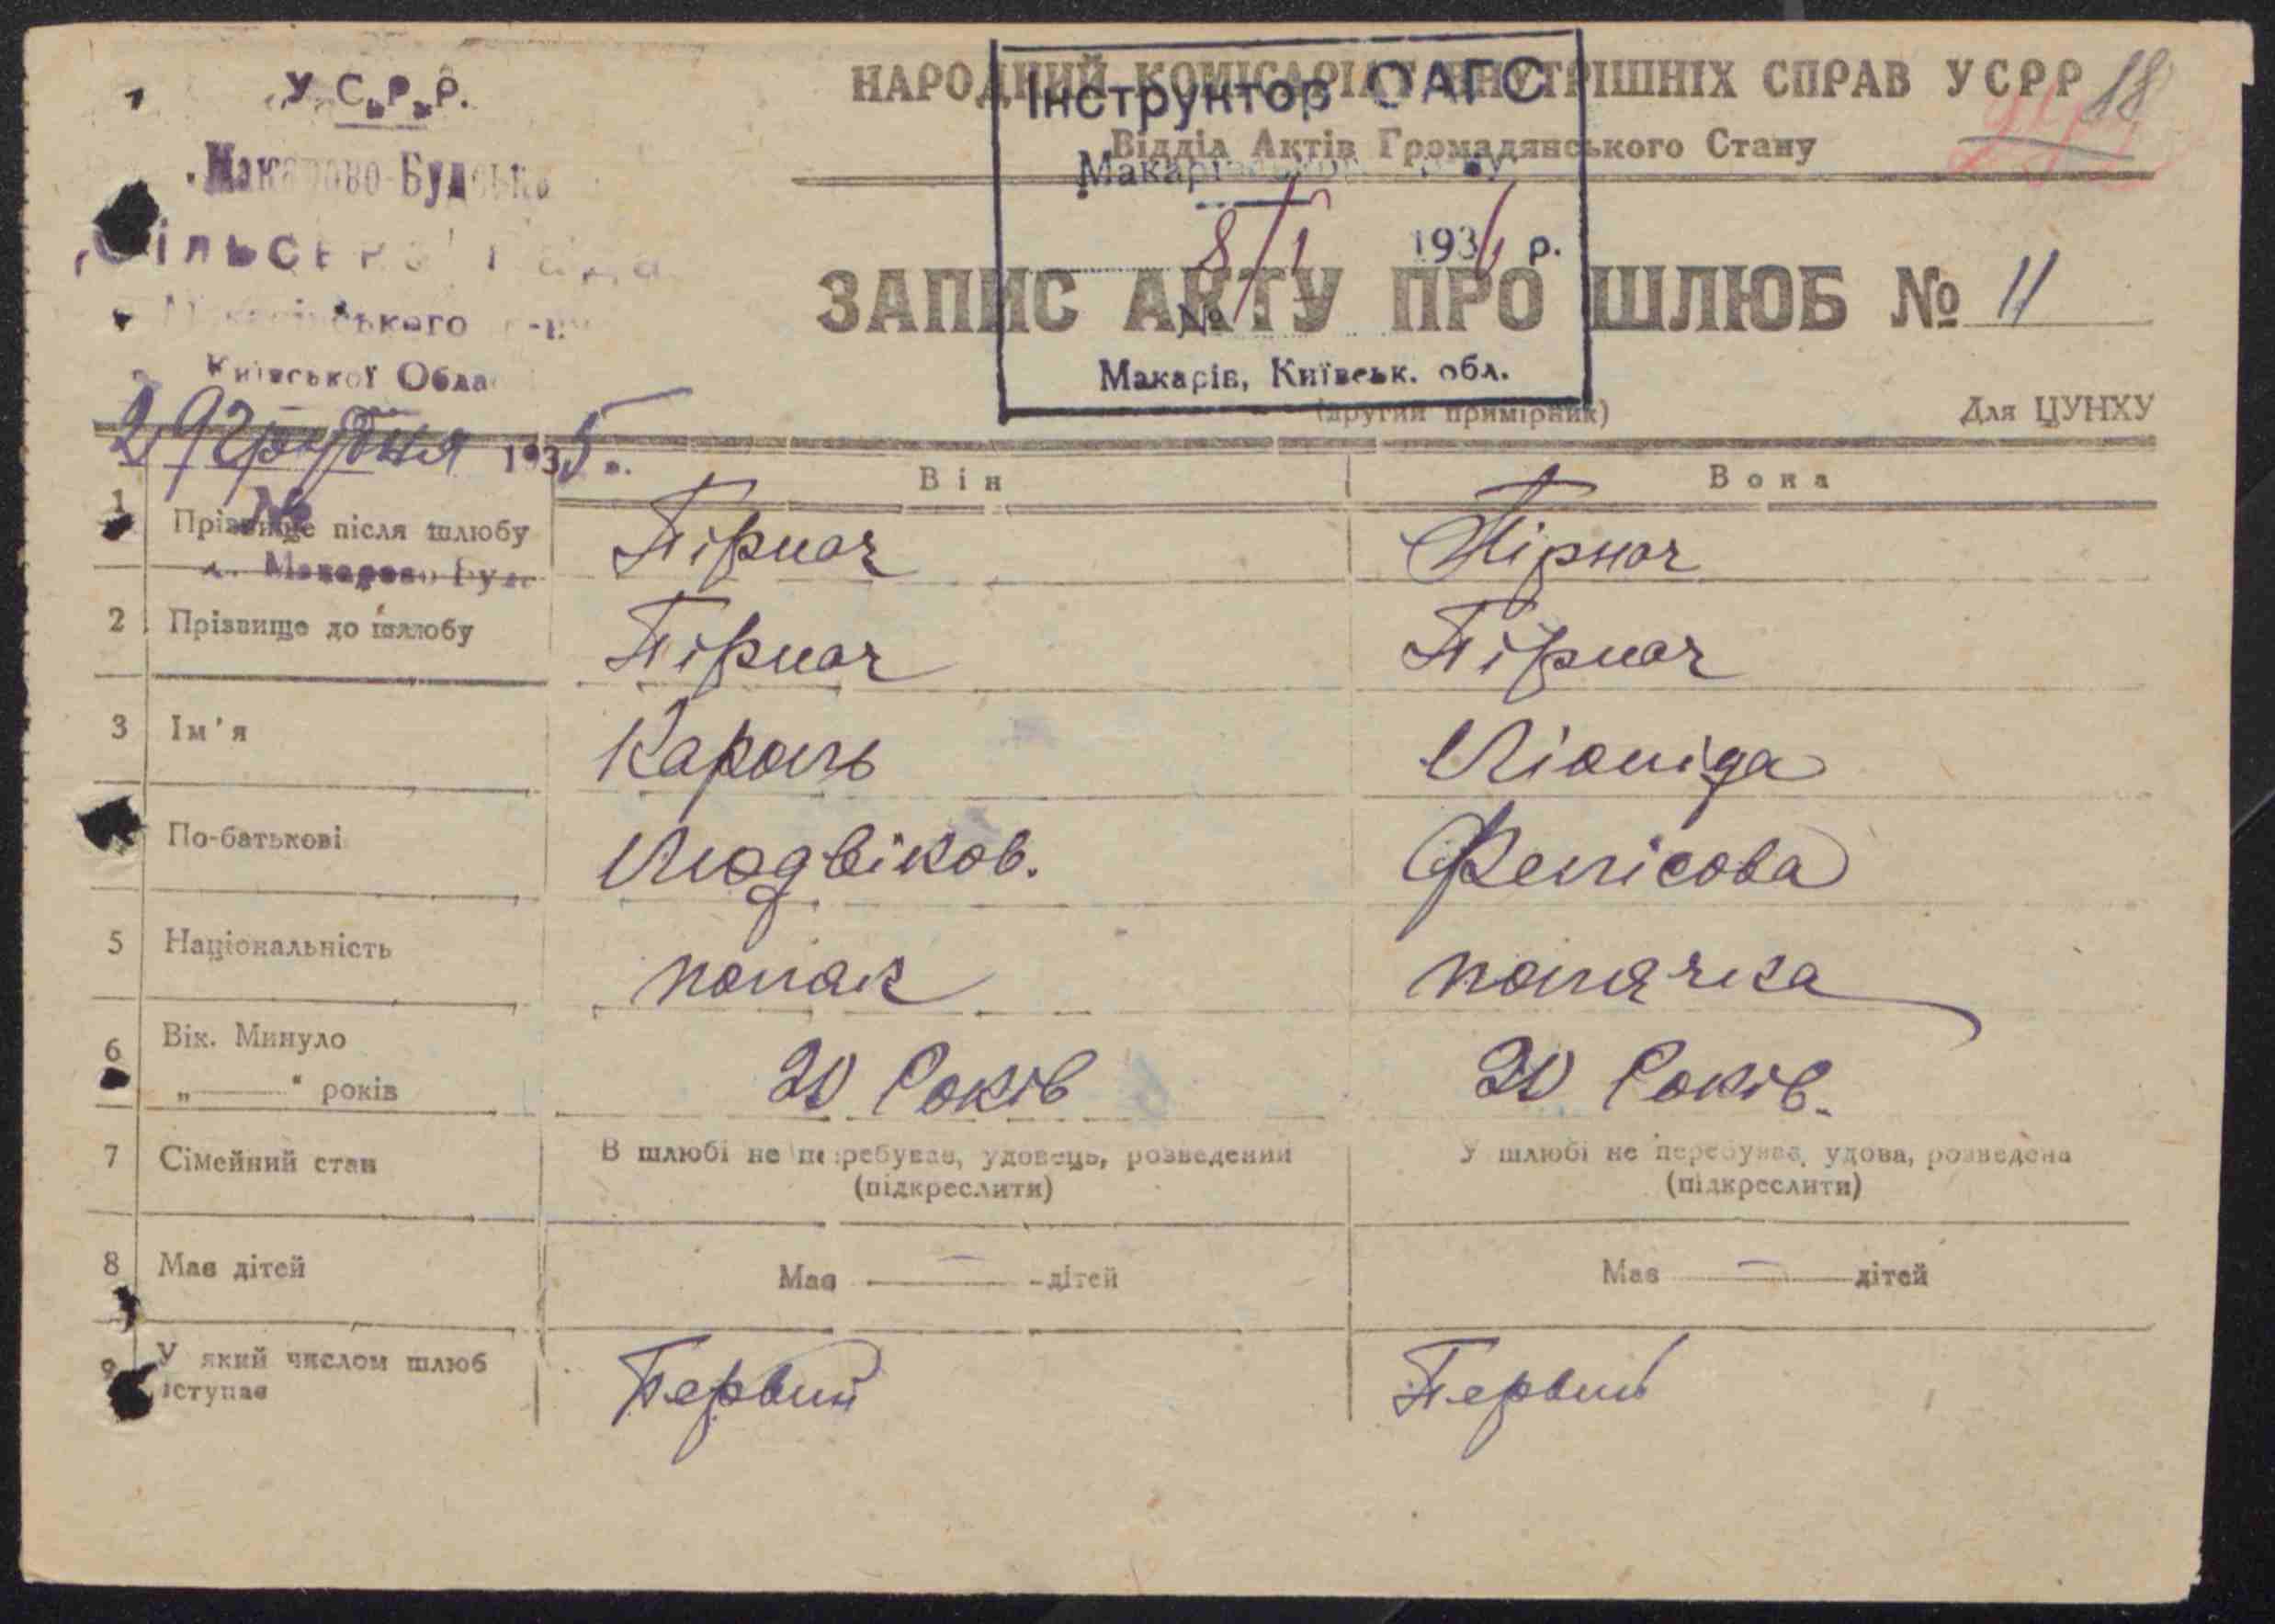 У.С.Р.Р.
Макарово-Будська
Сільська Рада
Макарівського р-ну
Київської Обла
29 грудня 1935 р.
№
с. Макарово Буда
НАРОДНИЙ КОМІСАРІАТ ВНУТРІШНІХ СПРАВ УСРР 18
Відділ Актів Громадянського Стану
Інструктор ОАГС
Макарівського р-ну
8/I 1936 р.
№
Макарів, Київськ. обл.
ЗАПИС АКТУ ПРО ШЛЮБ № 11
(другий примірник) Для ЦУНХУ
Він Вона
1 Прізвище після шлюбу Пірнач Пірнач
2 Прізвище до шлюбу Пірнач Пірнач
3 Ім'я Кароль Ліоніда
По-батькові Людвіков. Фелісова
5 Національність поляк полячка
6 Вік. Минуло
„——“ років 20 Років 20 Років.
7 Сімейний стан В шлюбі не перебував, удовець, розведений У шлюбі не перебував, удова, розведена
(підкреслити) (підкреслити)
8 Має дітей Має — дітей Має — дітей
9 У який числом шлюб Первий Первий
вступає